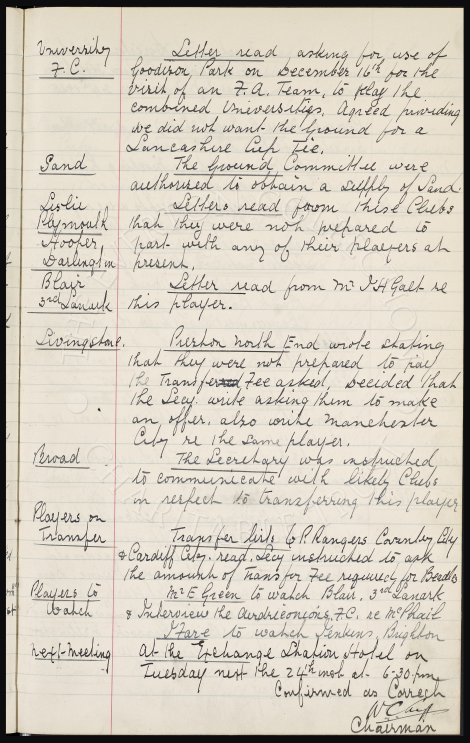 University
F.C.
Letter read asking for use of
Goodison Park on December 16th for the
visit of an F.A. Team, to play the
combined Universities. Agreed providing
we did not want the Ground for a
Lancashire Cup Tie.
Sand
The Ground Committee were
authorised to obtain a supply of Sand
Leslie
Plymouth
Hooper
Darlington
Letters read from these Clubs
that they were not prepared to
part with any of their players at
present.
Blair
3rd Lanark
Letter read from Mr J H Galt re
this player.
Livingstone.
Preston North End wrote stating
that they were not prepared to pay
the Transfer Fee asked, decided that
the Secy. write asking them to make
an offer. also write Manchester
City re the same player.
Broad
The Secretary was instructed
to communicate with likely Clubs
in respect to transferring this player
Players on
Transfer
Transfer lists Q.P. Rangers Coventry City
& Cardiff City, read. Secy instructed to ask
the amount of Transfer Fee required for Beadles
Players to
Watch
Mr E Green to watch Blair, 3rd Lanark
& Interview the Airdrieonians F.C. re McPhail
to watch Jenkins, Brighton
next meeting
At the Exchange Station Hotel on
Tuesday next the 24th inst at 6-30 pm
Confirmed as Correct
Chairman